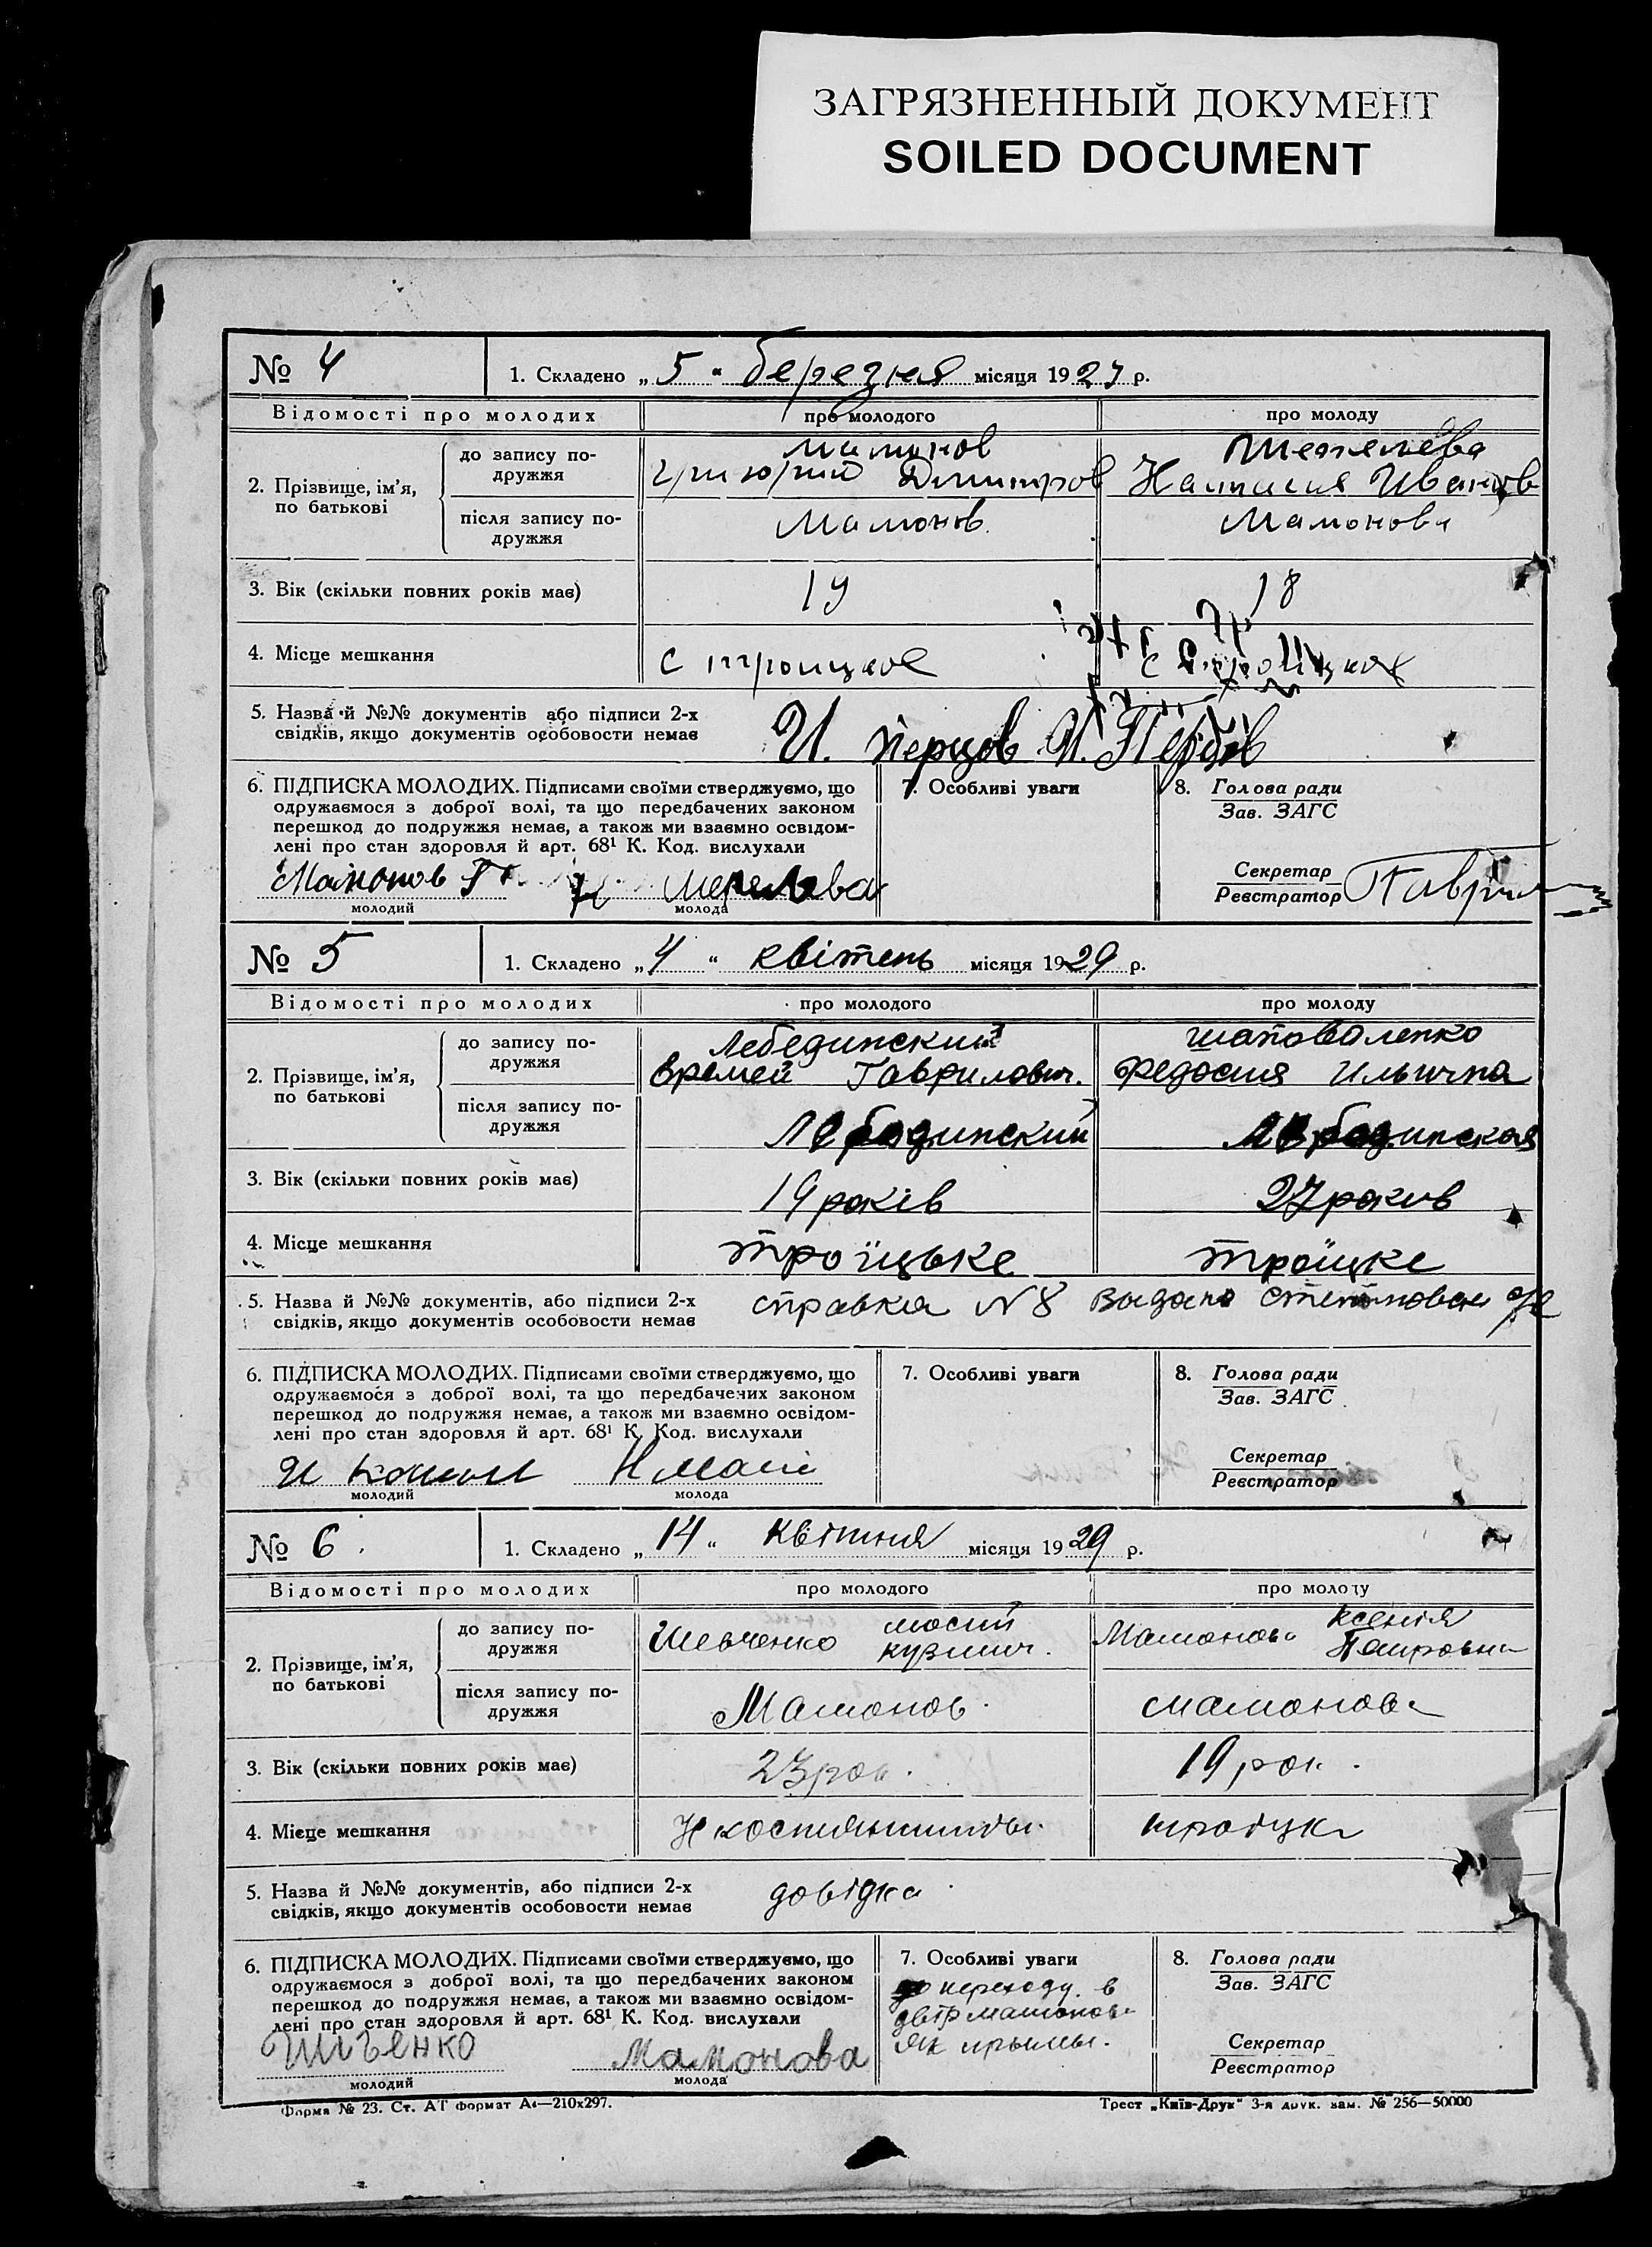 ЗАГРЯЗНЕННЫЙ ДОКУМЕНТ
SOILED DOCUMENT
№ 4
1. Складено „ 5 “ березня місяця 1929 р.
Відомості про молодих
про молодого
про молоду
2. Прізвище, ім’я, по батькові
до запису подружжя
Мамонов
Григорий Дмитров
Наталия Иванов
після запису подружжя
Мамонов
Мамонова
3. Вік (скільки повних років має)
19
18
4. Місце мешкання
с троицкое
5. Назва й №№ документів або підписи 2-х
свідків, якщо документів особовости немає
И. Перцов И.
6. ПІДПИСКА МОЛОДИХ. Підписами своїми стверджуємо, що
одружаємося з доброї волі, та що передбачених законом
перешкод до подружжя немає, а також ми взаємно освідом-
лені про стан здоровля й арт. 68¹ К. Код. вислухали
Мамонов Г
молодий
молода
7. Особливі уваги
8. Голова ради
Зав. ЗАГС
Секретар
Реєстратор
№ 5
1. Складено „ 4 “ квітень місяця 1929 р.
Відомості про молодих
про молодого
про молоду
2. Прізвище, ім’я,
по батькові
до запису по-
дружжя
Лебединский
Еремей Гаврилович.
Шаповаленко
Федосия Ильична
після запису по-
дружжя
Лебединский
Лебединская
3. Вік (скільки повних років має)
19 років
27 роков
4. Місце мешкання
Троїцьке
Троїцке
5. Назва й №№ документів, або підписи 2-х
свідків, якщо документів особовости немає
справка N 8 Видано
6. ПІДПИСКА МОЛОДИХ. Підписами своїми стверджуємо, що
одружаємося з доброї волі, та що передбачених законом
перешкод до подружжя немає, а також ми взаємно освідом-
лені про стан здоровля й арт. 68¹ К. Код. вислухали
молодий
молода
7. Особливі уваги
8. Голова ради
Зав. ЗАГС
Секретар
Реєстратор
№ 6
1. Складено „ 14 “ Квітня місяця 1929 р.
Відомості про молодих
про молодого
про молоду
2. Прізвище, ім’я,
по батькові
до запису по-
дружжя
Шевченко
кузмич.
Мамонова Ксенія
Петровна
після запису по-
дружжя
Мамонов
мамонова
3. Вік (скільки повних років має)
23 рок.
19 рок.
4. Місце мешкання
троіцке
5. Назва й №№ документів, або підписи 2-х
свідків, якщо документів особовости немає
довідка
6. ПІДПИСКА МОЛОДИХ. Підписами своїми стверджуємо, що
одружаємося з доброї волі, та що передбачених законом
перешкод до подружжя немає, а також ми взаємно освідом-
лені про стан здоровля й арт. 68¹ К. Код. вислухали
молодий
Мамонова
молода
7. Особливі уваги
переходу в
двір мамонова
як прыймы.
8. Голова ради
Зав. ЗАГС
Секретар
Реєстратор
Форма № 23. Ст. АТ формат А4—210х297.
Трест „Київ-Друк“ 3-я друк. зам. № 256—50000